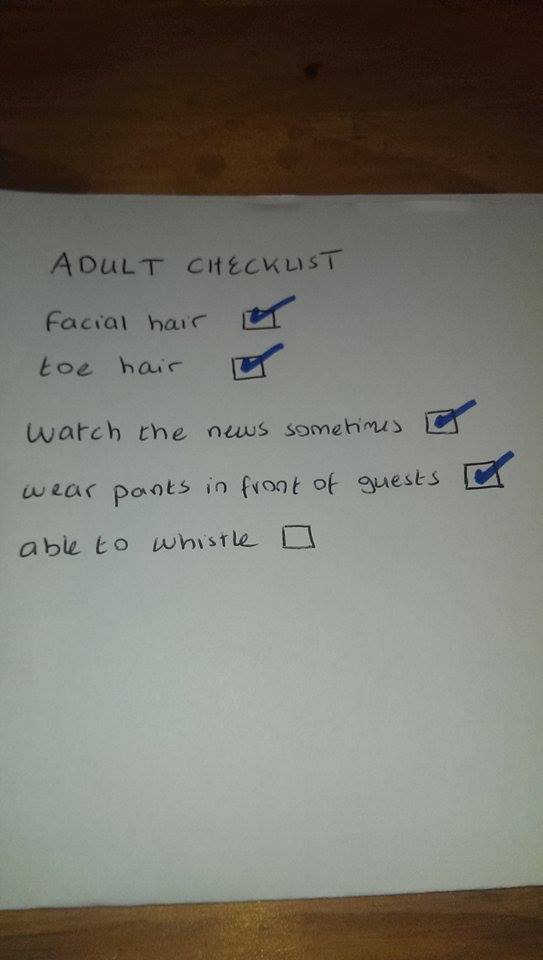 ADULT CHECKLIST
facial hair
toe hair
watch the news sometimes
wear pants in front of guests
able to whistle